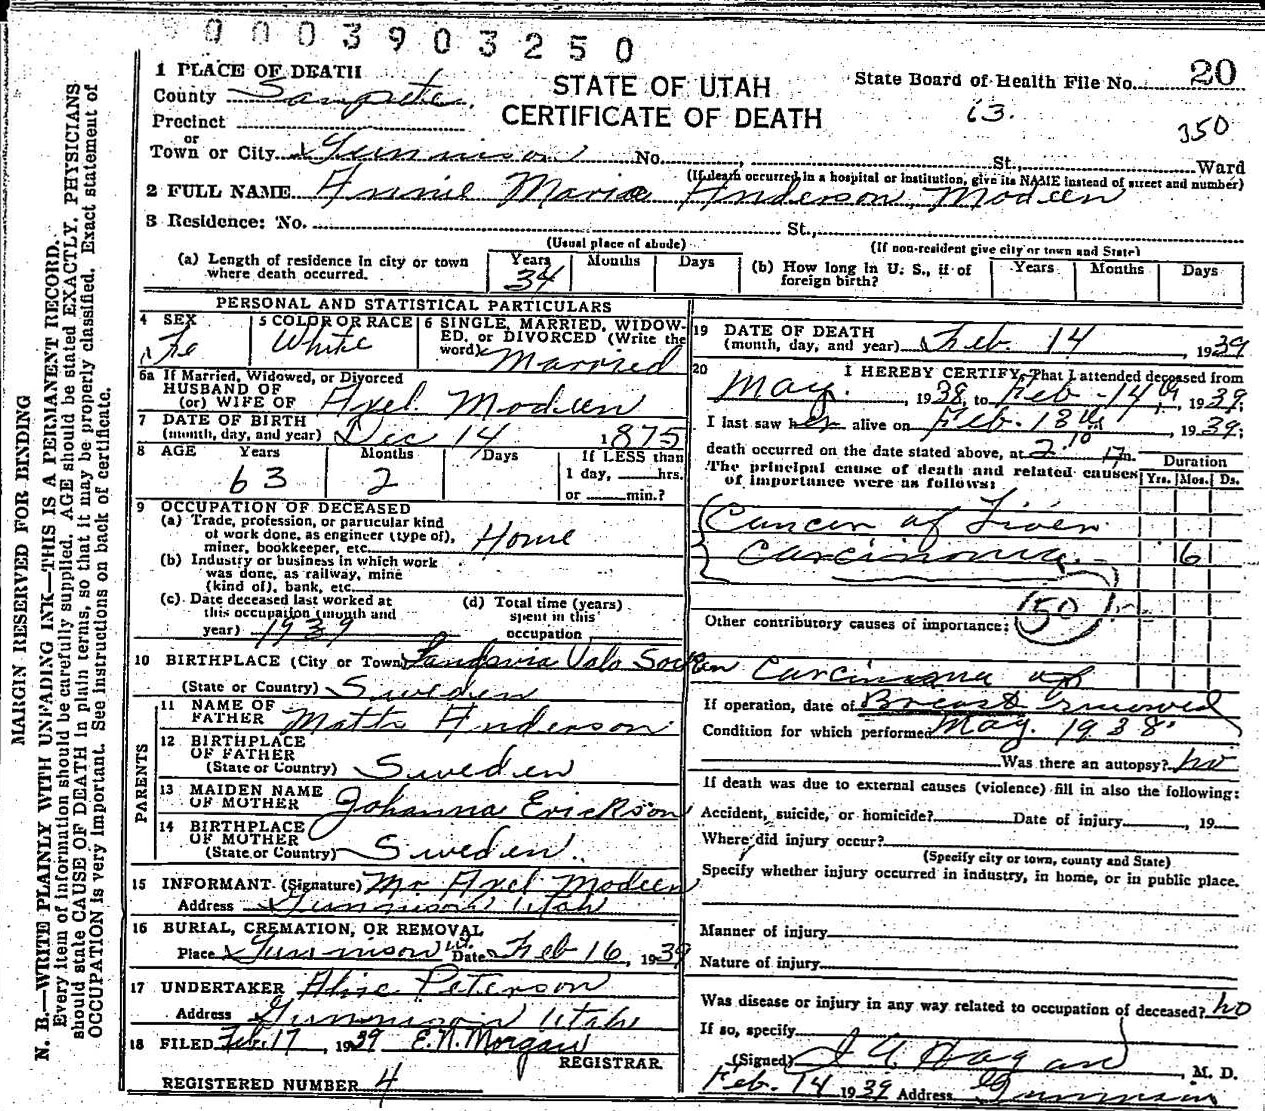 0003903250
1 PLACE OF DEATH
County Sanpete
Precinct
or
Town or City Gunnison No. St., Ward
STATE OF UTAH
CERTIFICATE OF DEATH
State Board of Health File No. 20
13.
350
(If death occurred in a hospital or institution, give its NAME instead of street and number)
2 FULL NAME Annie Maria Anderson Modeen
3 Residence: No. St.,
(Usual place of abode) (If non-resident give city or town and State)
(a) Length of residence in city or town where death occurred. Years 34 Months Days
(b) How long in U. S., if of foreign birth? Years Months Days
PERSONAL AND STATISTICAL PARTICULARS
4 SEX Fe
5 COLOR OR RACE White
6 SINGLE, MARRIED, WIDOWED, or DIVORCED (Write the word) Married
6a If Married, Widowed, or Divorced
HUSBAND OF
(or) WIFE OF Axel Modeen
7 DATE OF BIRTH
(month, day, and year) Dec 14 1875
8 AGE Years Months Days If LESS than
63 2 1 day, hrs.
or min.?
9 OCCUPATION OF DECEASED
(a) Trade, profession, or particular kind
of work done, as engineer (type of),
miner, bookkeeper, etc. Home
(b) Industry or business in which work
was done, as railway, mine
(kind of), bank, etc.
(c) Date deceased last worked at
this occupation (month and
year) 1937
(d) Total time (years)
spent in this
occupation
10 BIRTHPLACE (City or Town)
(State or Country) Sweden
PARENTS
11 NAME OF
FATHER Matts Anderson
12 BIRTHPLACE
OF FATHER
(State or Country) Sweden
13 MAIDEN NAME
OF MOTHER Johanna Erickson
14 BIRTHPLACE
OF MOTHER
(State or Country) Sweden.
15 INFORMANT (Signature) Mr Axel Modeen
Address Gunnison Utah
16 BURIAL, CREMATION, OR REMOVAL
Place Gunnison Ut. Date Feb 16, 1939
17 UNDERTAKER Alice Peterson
Address Gunnison Utah
18 FILED Feb. 17, 1939 E.N. Morgan
REGISTRAR.
REGISTERED NUMBER 4
19 DATE OF DEATH
(month, day, and year) Feb. 14, 1939
20 I HEREBY CERTIFY, That I attended deceased from
May, 1938, to Feb - 14th, 1939;
I last saw her alive on Feb. 13th, 1939;
death occurred on the date stated above, at 2:10 m.
The principal cause of death and related causes
of importance were as follows:
Duration
Yrs. Mos. Ds.
Cancer of Liver
Carcinoma 6
50
Other contributory causes of importance:
Carcinoma of
If operation, date of Breast removed
Condition for which performed May. 1938
Was there an autopsy? no
If death was due to external causes (violence) fill in also the following:
Accident, suicide, or homicide? Date of injury, 19
Where did injury occur?
(Specify city or town, county and State)
Specify whether injury occurred in industry, in home, or in public place.
Manner of injury
Nature of injury
Was disease or injury in any way related to occupation of deceased? no
If so, specify
(Signed) Hagan, M. D.
Feb. 14 1939 Address Gunnison
MARGIN RESERVED FOR BINDING
N. B.—WRITE PLAINLY WITH UNFADING INK—THIS IS A PERMANENT RECORD.
Every item of information should be carefully supplied. AGE should be stated EXACTLY. PHYSICIANS
should state CAUSE OF DEATH in plain terms, so that it may be properly classified. Exact statement of
OCCUPATION is very important. See instructions on back of certificate.